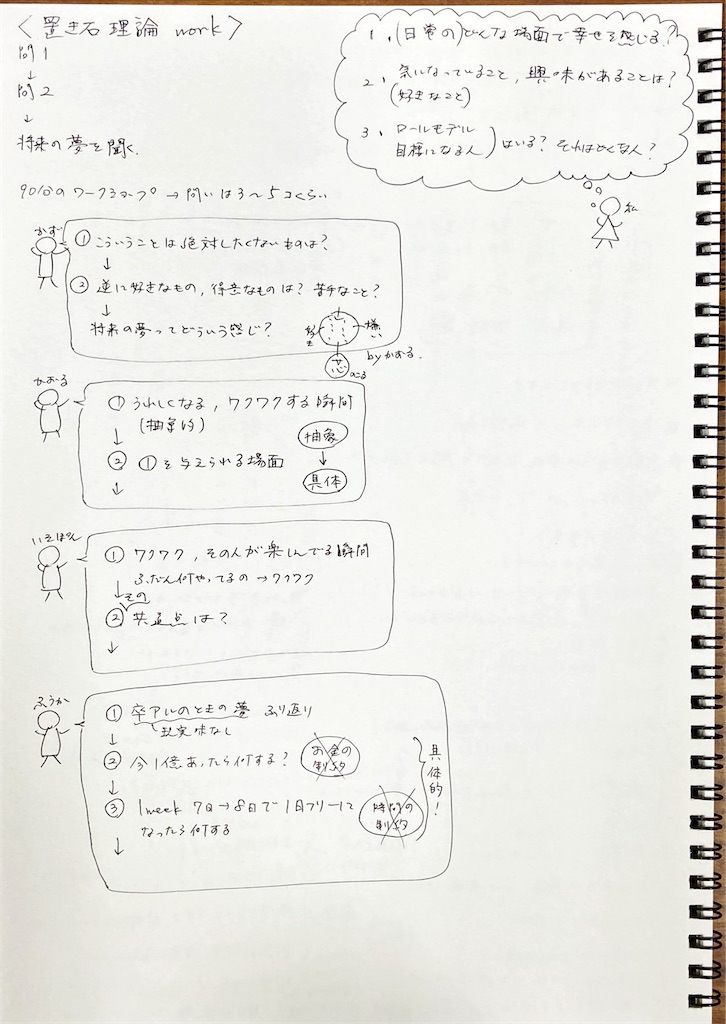 <置き石理論 work>
問1
↓
問2
↓
将来の夢を聞く.
90分のワークショップ → 問いは3〜5コくらい
1、(日常の)どんな場面で幸せを感じる?
2、気になっていること, 興味があることは?
(好きなこと)
3、ロールモデル
目標になる人)はいる? それはどんな人?
私
かず
① こういうことは絶対したくないものは?
↓
② 逆に好きなもの, 得意なものは? 苦手なこと?
↓
将来の夢ってどういう感じ?
嫌い
by かおる.
かおる
① うれしくなる, ワクワクする瞬間
(抽象的)
↓
② ①を与えられる場面
↓
抽象
↓
具体
いそはん
① ワクワク, その人が楽しんでる瞬間
ふだん何やってるの → ワクワク
↓ その
② 共通点は?
↓
ふうか
① 卒アルのときの夢 ふり返り
現実味なし
↓
② 今1億あったら何する?
お金の
制約
↓
③ 1week 7日→8日で1日フリーに
なったら何する
時間の
制約
↓
具体的!